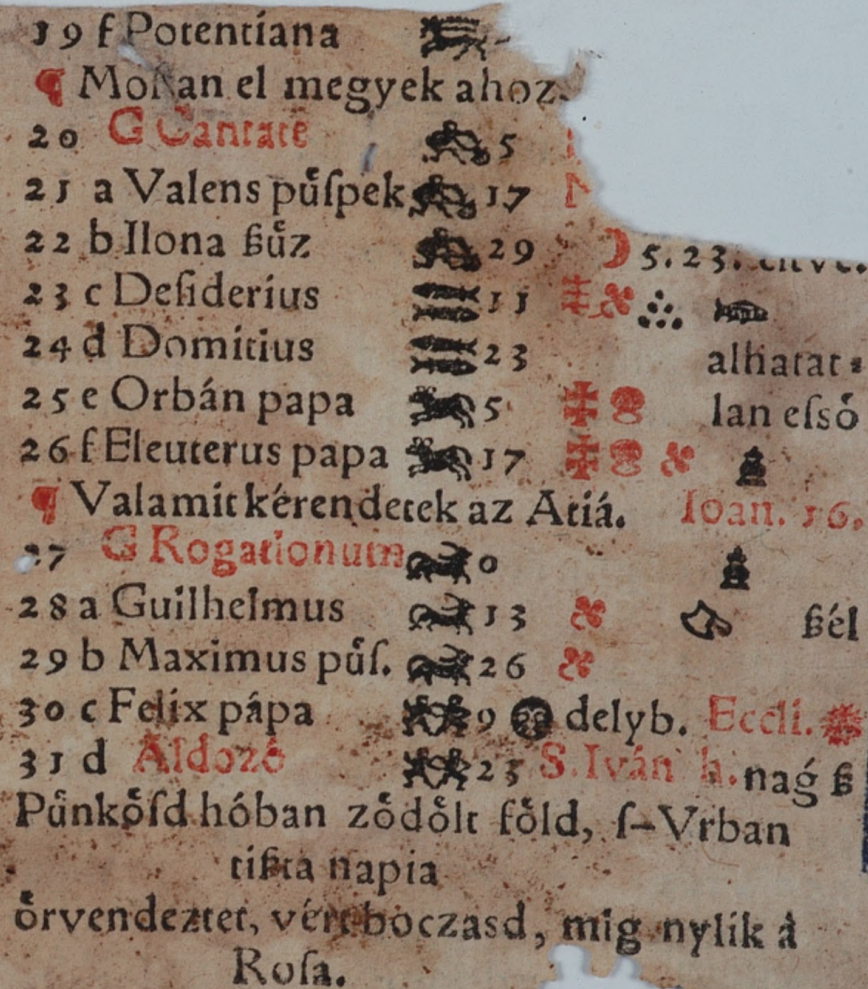 19 f Potentiana
¶ Moſtan el megyek ahoz.
20 G Cantate 5
21 a Valens puͤſpek 17
22 b Ilona ßuͤz 29 ☽ 5.23.
23 c Deſiderius 11
24 d Domitius 23 alhatat⸗
25 e Orbán papa 5 lan eſsoͤ
26 f Eleuterus papa 17
¶ Valamit kérendetek az Atiá. Ioan. 16.
27 G Rogationum 0
28 a Guilhelmus 13 ßél
29 b Maximus puͤſ. 26
30 c Felix pápa 9 delyb. Eccli.
31 d Aldozó 23 S. Iván h. naǵ ß
Puͤnkoͤſd hóban zoͤdoͤlt foͤld, ſ–Vrban
tißta napia
oͤrvendeztet, vért boczasd, mig nylik á
Roſa.